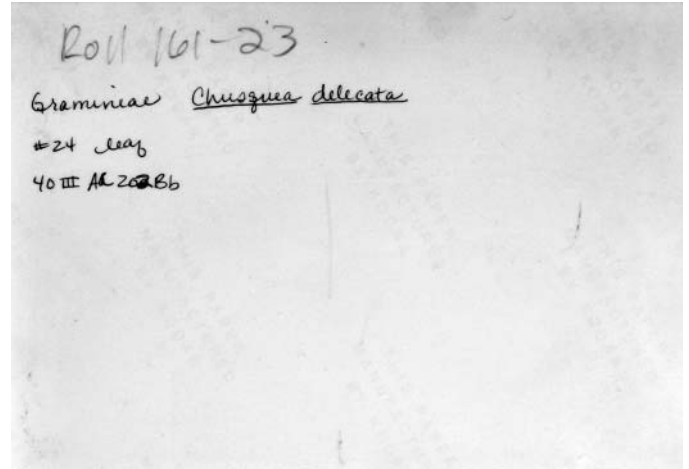 Roll 161-23
Gramineae Chusquea delecata
#24 leaf
40 III